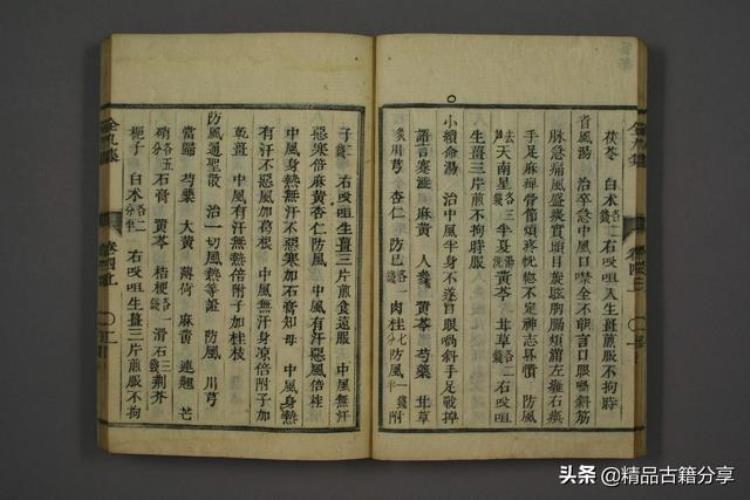 茯苓 白朮各二錢 右㕮咀入生薑煎服不拘時
首風湯 治卒急中風口噤全不能言口眼喎斜筋
脉急痛風盛痰實頭目眩胸膈煩滿左癱右瘓
手足麻痺骨節煩疼恍惚不定神志昏憒 防風
去天南星各三錢 半夏 黃芩 甘草各二錢 右㕮咀
生薑三片煎不拘時服
小續命湯 治中風半身不遂口眼喎斜手足戰掉
語言蹇澁 麻黃 人參 黃芩 芍藥 甘草
炙川芎 杏仁 防巳各一錢 肉桂七分 防風一錢 附
子 右㕮咀生薑三片煎食遠服 中風無汗
惡寒倍麻黃杏仁防風 中風有汗惡風倍桂
中風身熱無汗不惡寒加石膏知母 中風身熱
有汗不惡風加葛根 中風無汗身凉倍附子加
乾薑 中風有汗無熱倍附子加桂枝
防風通聖散 治一切風熱等證 防風 川芎
當歸 芍藥 大黃 薄荷 麻黃 連翹 芒
硝各五分 石膏 黃芩 桔梗各一錢 滑石三錢 荆芥
梔子 白朮各二分半 右㕮咀生薑三片煎服不拘
头条 @精品古籍分享